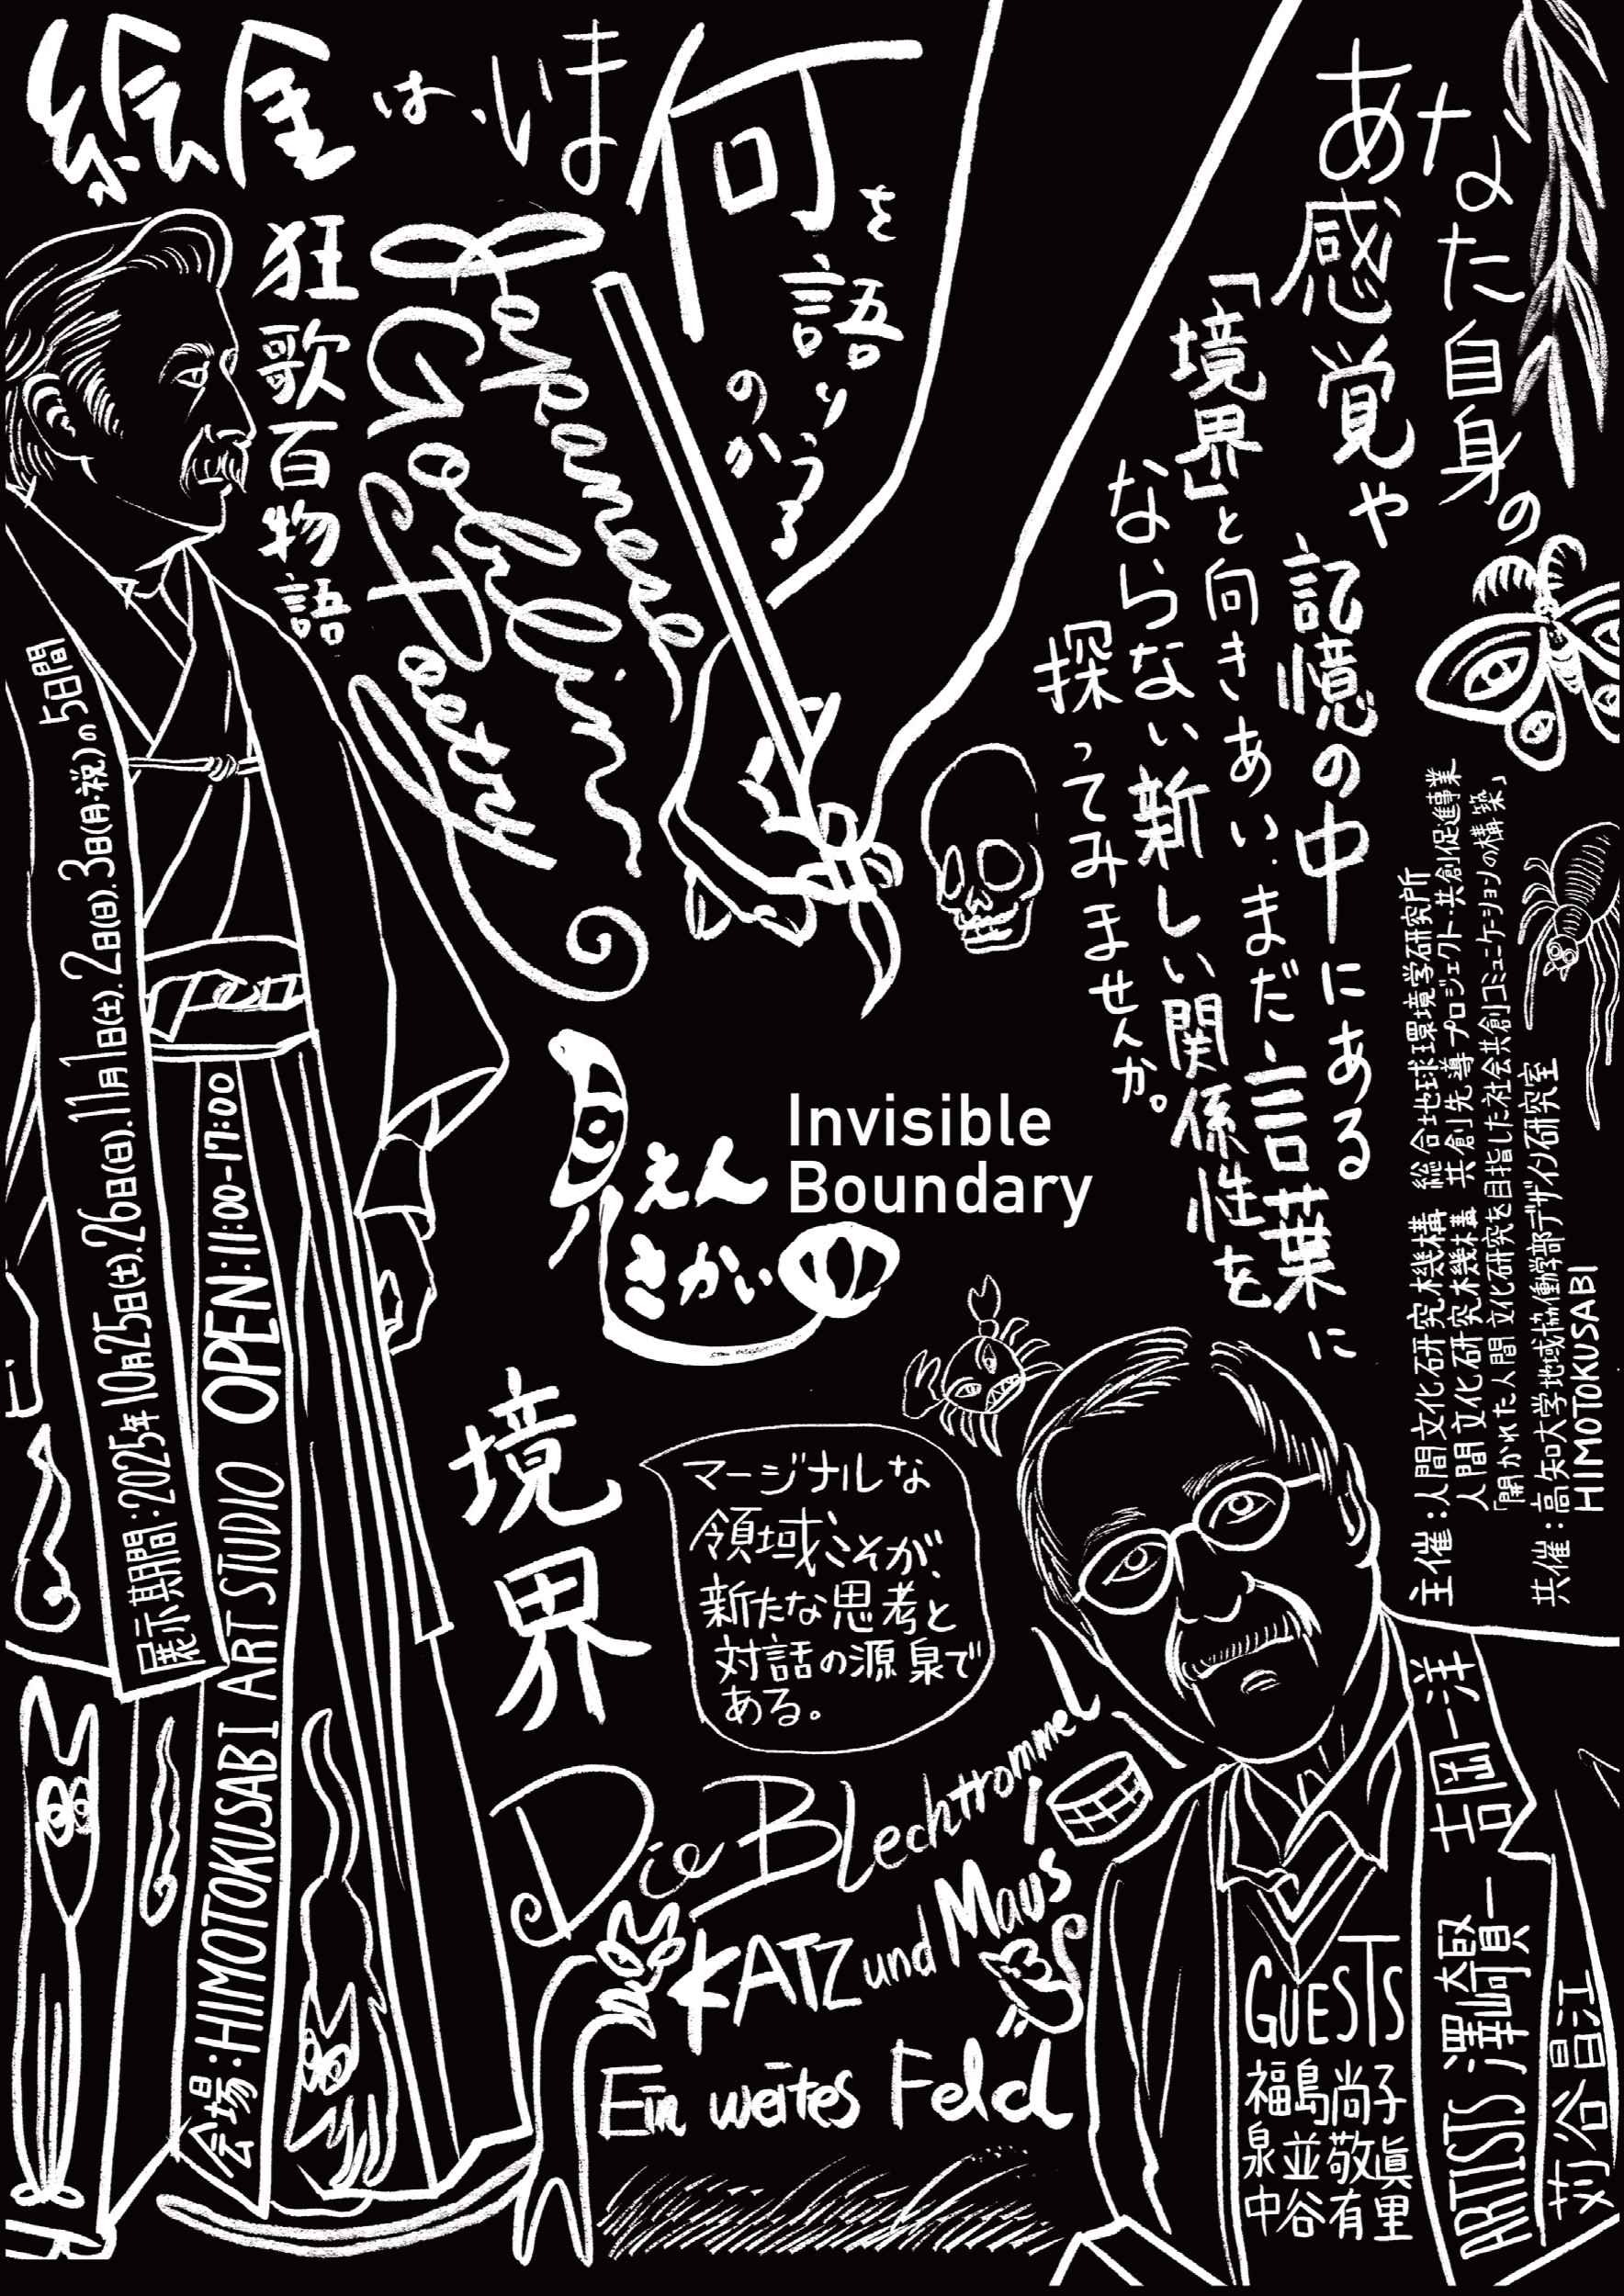 絵金は、いま何を語りうるのか
狂歌百物語
Japanese
Goblin
Poetry
あなた自身の
感覚や
記憶の中にある
「境界」と向きあい、まだ言葉に
ならない新しい関係性を
探ってみませんか。
見えない
さかい
Invisible
Boundary
境界
マージナルな
領域こそが、
新たな思考と
対話の源泉で
ある。
Die Blechtrommel
KATZ und Maus
Ein weites Feld
展示期間:2025年10月25日(土).26日(日).11月1日(土).2日(日).3日(月・祝)の5日間
OPEN:11:00-17:00
会場:HIMOTOKUSABI ART STUDIO
主催:人間文化研究機構 総合地球環境学研究所
人間文化研究機構 共創先導プロジェクト・共創促進事業
「開かれた人間文化研究を目指した社会共創コミュニケーションの構築」
共催:高知大学地域協働学部デザイン研究室
HIMOTOKUSABI
GUESTS
福島尚子
泉並敬眞
中谷有里
ARTISTS
吉岡一洋
澤崎賢一
苅谷昌江